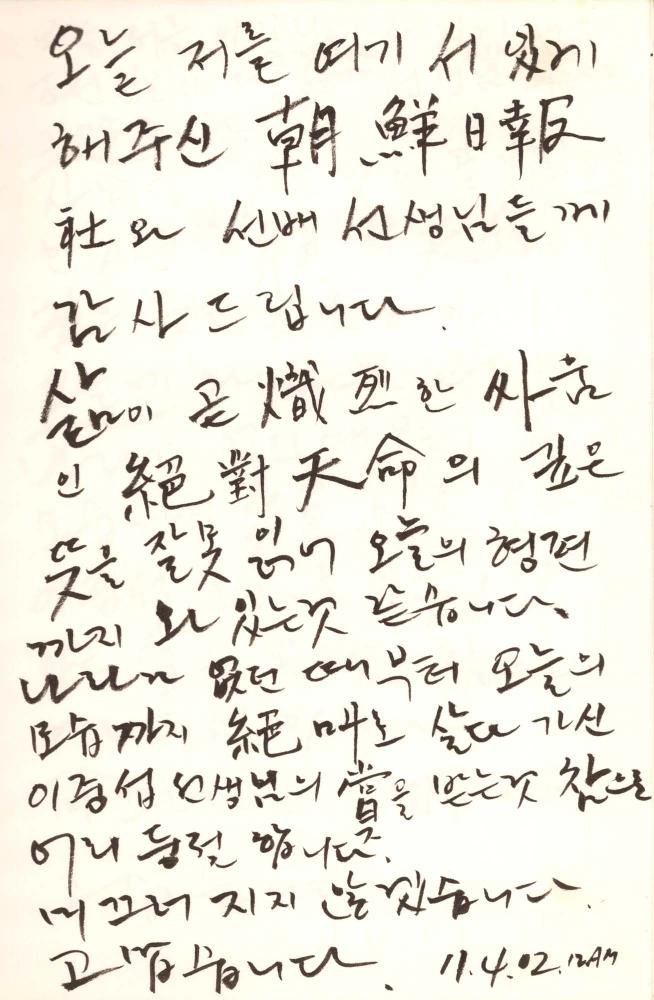 오늘 저를 여기 서 있게
해주신 朝鮮日報
社와 선배 선생님들께
감사드립니다.
삶이 곧 熾烈한 싸움
인 絕對天命의 깊은
뜻을 잘못 읽어 오늘의 형편
까지 와 있는것 같습니다.
나라가 없던 때부터 오늘의
모습까지 絕 마로 살다 가신
이중섭 선생님의 賞을 받는것 참으로
어리둥절 합니다.
미끄러지지 않겠습니다.
고맙습니다. 11.4.02. 12AM